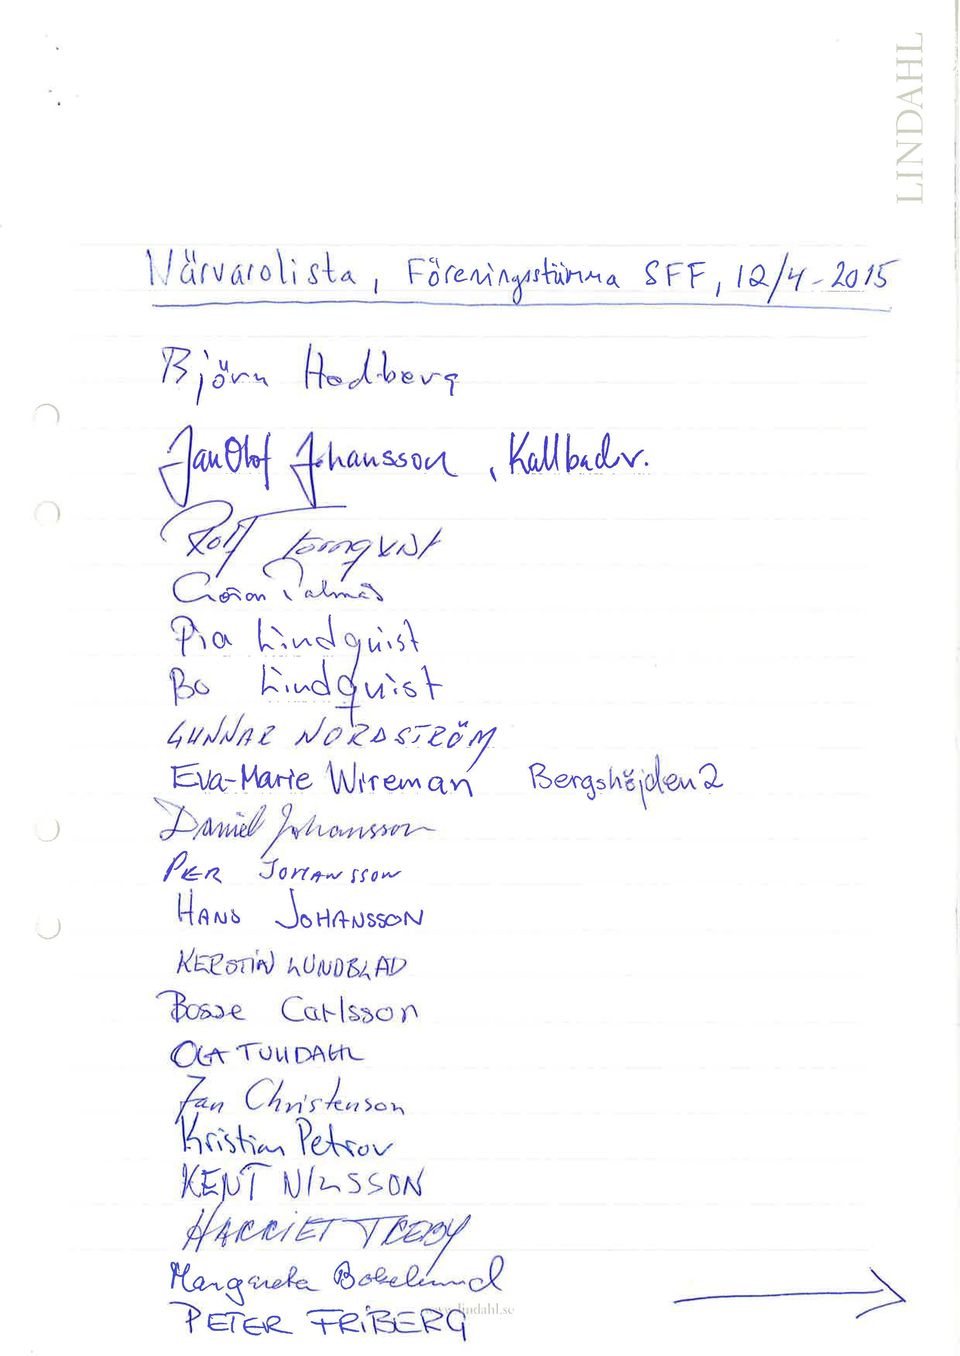 LINDAHL
Närvarolista, Föreningsstämma SFF, 12/4-2015
Björn Hedberg
Jan Olof Johansson, Kallbadv.
Rolf Törnqvist
Göran Palmås
Pia Lindquist
Bo Lindquist
GUNNAR NORDSTRÖM
Eva-Marie Wireman Bergshöjden 2
Daniel Johansson
PER JOHANSSON
HANS JOHANSSON
KERSTIN LUNDBLAD
Bosse Carlsson
OLA TUVIDAHL
Jan Christenson
Kristian Petrov
KENT NILSSON
HARRIET
Margareta Bokelund
PETER FRIBERG
www.lindahl.se